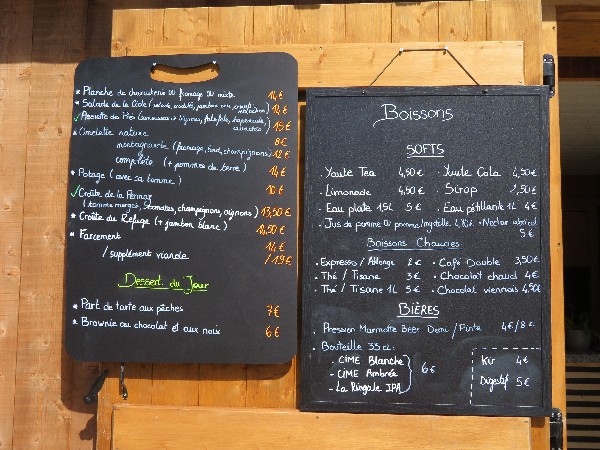 * Planche de charcuterie ou fromage ou mixte 14€
* Salade de la (salade, crudités, jambon cru, ) 14€
Assiette de (houmous + légumes, falafels, tapenade, ) 15€
* Omelette nature 8€
montagnarde (fromage, lard, champignons) 12€
complète (+ pommes de terre) 14€
* Potage (avec sa tomme) 10€
Croûte de la
(tomme margot, tomates, champignons, oignons) 13,50€
* Croûte du Refuge (+ jambon blanc) 14,50€
* Farcement 14€
/ supplément viande / 19€
Dessert du Jour
* Part de tarte aux pêches 7€
* Brownie au chocolat et aux noix 6€
Boissons
SOFTS
. Youte Tea 4,50€ . Youte Cola 4,50€
. Limonade 4,50€ . Sirop 2,50€
. Eau plate 1,5L 5€ . Eau pétillante 1L 4€
. Jus de pomme ou pomme/myrtille 4,80€ . Nectar abricot
5€
Boissons Chaudes
. Expresso / Allongé 2€ . Café Double 3,50€
. Thé / Tisane 3€ . Chocolat chaud 4€
. Thé / Tisane 1L 5€ . Chocolat viennois 4,50€
BIÈRES
. Pression Marmotte Beer Demi / Pinte 4€/8€
. Bouteille 33cl:
- CIME Blanche
- CIME Ambrée 6€
- La Ringale IPA
Kir 4€
Digestif 5€